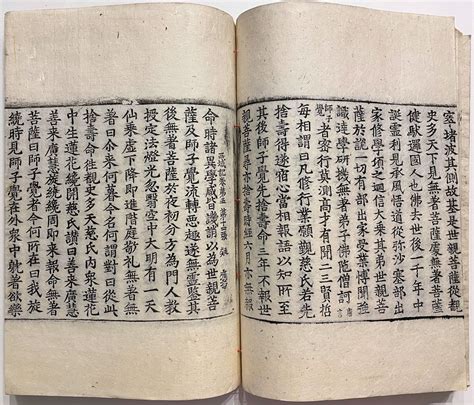 窣堵波其側故基是世親菩薩從覩
史多天下見無著菩薩處無著菩薩
健馱邏國人也佛去世後一千年中
誕靈利見承風悟道從弥沙塞部出
家修學頃之迴信大乘其弟世親菩
薩於說一切有部出家受業博聞強
識達學研機無著弟子佛陁僧訶唐言
師子覺者密行莫測高才有聞二三賢哲
每相謂曰凡修行業願覲慈氏若先
捨壽命得遂宿心當相報語以知所至
其後師子覺先捨壽命三年不報世
親菩薩尋亦捨壽時經六月亦無報
命時諸異學咸皆譏誚以為世親菩
薩及師子覺流轉惡趣遂無靈鑒其
後無著菩薩於夜初分方為門人教
授定法燈光忽翳空中大明有一天
仙乘虛下降即進階庭敬禮無著無
著曰尒來何暮今名何謂對曰從此
捨壽命往覩史多天慈氏內衆蓮花
中生蓮花纔開慈氏讚曰善來廣慧
善來廣慧旋繞纔周即來報命無著
菩薩曰師子覺者今何所在曰我旋
繞時見師子覺在外衆中躭著欲樂